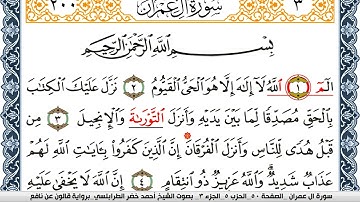 ٢٠٠ سُورَةُ آلِ عِمْرَانَ ٣
بِسْمِ اللَّهِ الرَّحْمَٰنِ الرَّحِيمِ
أَلَٓمِّٓ ١ اَللَّهُ لَآ إِلَٰهَ إِلَّا هُوَ اَلْحَيُّ اُلْقَيُّومُ ٢ نَزَّلَ عَلَيْكَ اَلْكِتَٰبَ
بِالْحَقِّ مُصَدِّقًا لِّمَا بَيْنَ يَدَيْهِ وَأَنزَلَ اَلتَّوْرَىٰةَ وَالْإِنجِيلَ ٣ مِن
قَبْلُ هُدًى لِّلنَّاسِ وَأَنزَلَ اَلْفُرْقَانَ إِنَّ اَلَّذِينَ كَفَرُوا بِـَٔايَٰتِ اِللَّهِ لَهُمْ
عَذَابٌ شَدِيدٌ وَاللَّهُ عَزِيزٌ ذُو اُنتِقَامٍ ٤ إِنَّ اَللَّهَ لَا يَخْفَىٰ عَلَيْهِ
سورة آل عمران الصفحة ٥٠ الحزب ٥ الجزء ٣ بصوت الشيخ أحمد خضر الطرابلسي برواية قالون عن نافع